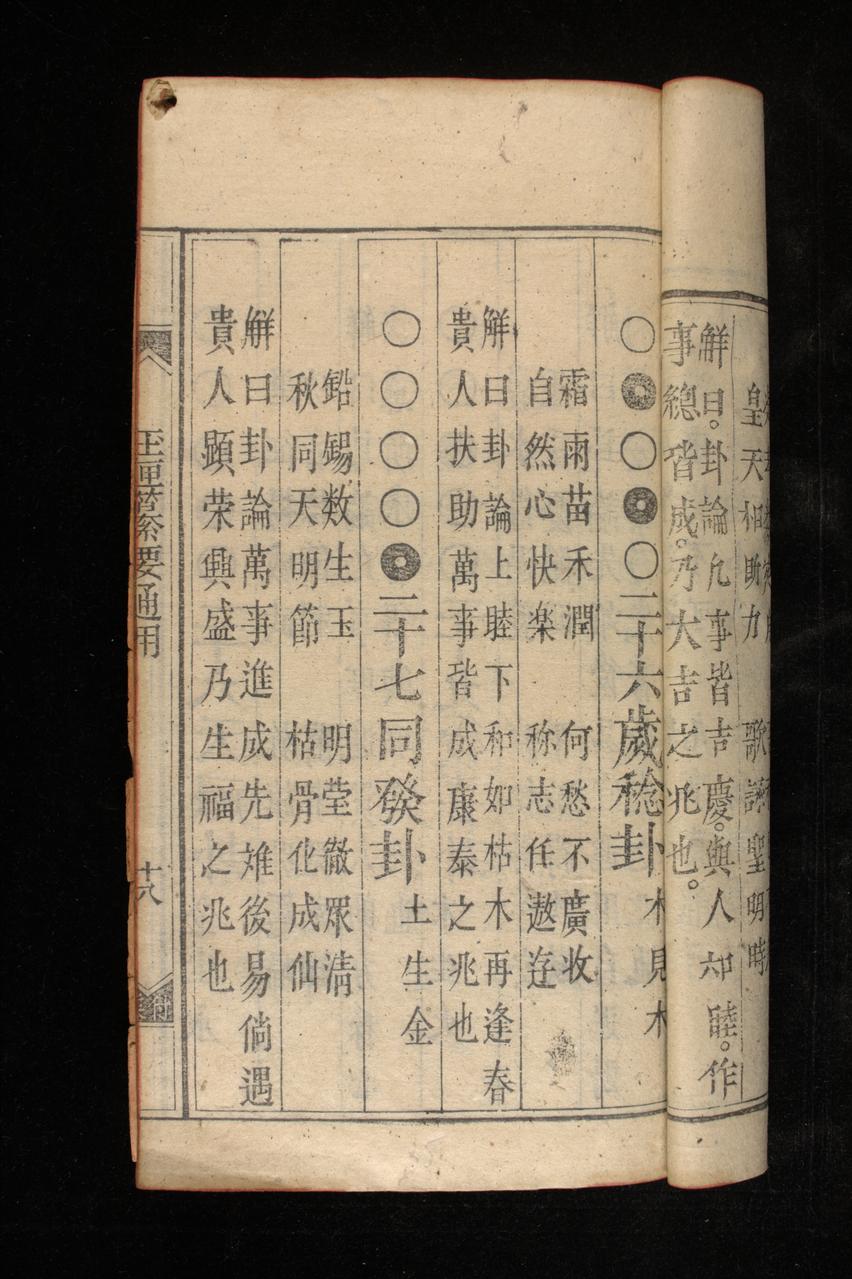 皇天相助力　歌謠聖明時
解曰。卦論凢事皆吉慶。與人和睦。作
事總皆成。乃大吉之兆也。
〇●〇●〇二十六歲稔卦　木見木
霜雨苗禾潤　何愁不廣收
自然心快楽　称志任遨逰
解曰卦論上睦下和如枯木再逢春
貴人扶助萬事皆成康泰之兆也
〇〇〇〇●二十七同癸卦　土生金
鉛錫数生玉　明莹徹眾清
秋同天明節　枯骨化成仙
解曰卦論萬事進成先难後易倘遇
貴人顕荣興盛乃生福之兆也
玉匣
要通用
十八